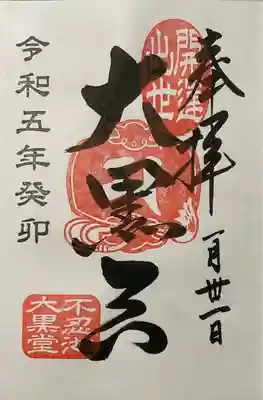 奉拝
一月廿一日
開運
出世
大黒天
令和五年癸卯
不忍池
大黒堂